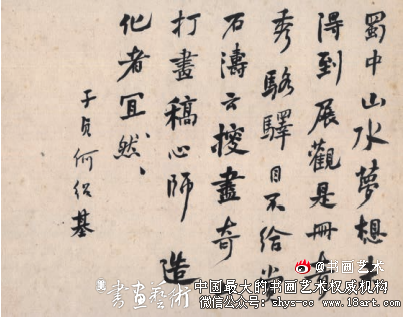 蜀中山水夢想
得到展觀是冊
秀駱驛目不給
石濤云搜盡奇
打畫稿心師 造
化者冝然
子貞何紹基
@书画艺术
美 書畫藝術
中国最大的书画艺术权威机构
微信公众号: shys-cc www.18art.com